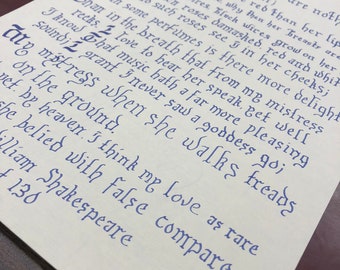 red than her lip
why then her breasts are
wires grow on her
roses damasked, red and whit
no such roses see I in her cheeks;
in some perfumes is there more delight
Than in the breath that from my mistress
reeks. I love to hear her speak, yet well
I know That music hath a far more pleasing
sound; I grant I never saw a goddess go;
My mistress when she walks treads
on the ground
yet by heaven I think my love as rare
she belied with false compare
William Shakespeare
130